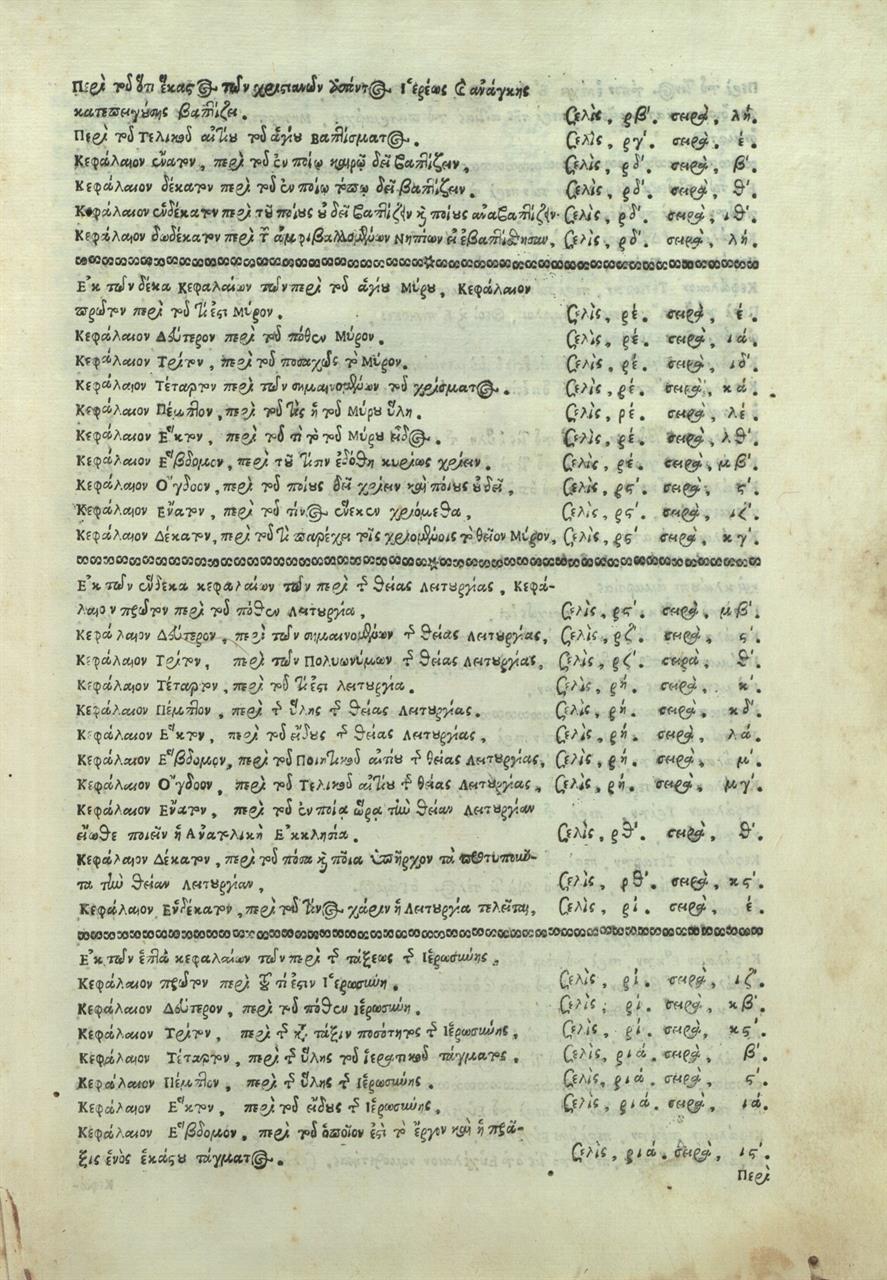 Περὶ τοῦ ὅτι ἕκαστος τῶν χριστιανῶν ἀπόντος Ἱερέως καὶ ἀνάγκης
κατεπειγούσης βαπτίζει. Σελὶς, ρβ΄. σειρὰ, λή.
Περὶ τοῦ Τελικοῦ αἰτίου τοῦ ἁγίου Βαπτίσματος. Σελὶς, ργ΄. σειρὰ, έ.
Κεφάλαιον ἔνατον, περὶ τοῦ ἐν ποίῳ καιρῷ δεῖ βαπτίζειν, Σελὶς, ρδ΄. σειρὰ, β΄.
Κεφάλαιον δέκατον περὶ τοῦ ἐν ποίῳ τόπῳ δεῖ βαπτίζειν. Σελὶς, ρδ΄. σειρὰ, θ΄.
Κεφάλαιον ἑνδέκατον περὶ τοῦ ποίους οὐ δεῖ βαπτίζειν καὶ ποίους ἀναβαπτίζειν. Σελὶς, ρδ΄. σειρὰ, ιθ΄.
Κεφάλαιον δωδέκατον περὶ τῶν ἀμφιβαλλομένων Νηπίων εἰ ἐβαπτίσθησαν, Σελὶς, ρδ΄. σειρὰ, λή.
Ἐκ τῶν δέκα Κεφαλαίων τῶν περὶ τοῦ ἁγίου Μύρου, Κεφάλαιον
πρῶτον περὶ τοῦ τί ἐστι Μύρον. Σελὶς, ρέ. σειρὰ, έ.
Κεφάλαιον Δεύτερον περὶ τοῦ πόθεν Μύρον. Σελὶς, ρέ. σειρὰ, ιά.
Κεφάλαιον Τρίτον, περὶ τοῦ ποσαχῶς τὸ Μύρον. Σελὶς, ρέ. σειρὰ, ιδ΄.
Κεφάλαιον Τέταρτον περὶ τῶν σημαινομένων τοῦ χρίσματος. Σελὶς, ρέ. σειρὰ, κά.
Κεφάλαιον Πέμπτον, περὶ τοῦ τίς ἡ τοῦ Μύρου ὕλη. Σελὶς, ρέ. σειρὰ, λέ.
Κεφάλαιον Ἕκτον, περὶ τοῦ τί τὸ τοῦ Μύρου εἶδος. Σελὶς, ρέ. σειρὰ, λθ΄.
Κεφάλαιον Ἕβδομον, περὶ τοῦ τίσιν ἐδόθη κυρίως χρίειν. Σελὶς, ρέ. σειρὰ, μβ΄.
Κεφάλαιον Ὄγδοον, περὶ τοῦ ποίους δεῖ χρίειν καὶ ποίους οὐ δεῖ, Σελὶς, ρς΄. σειρὰ, ς΄.
Κεφάλαιον Ἔνατον, περὶ τοῦ τίνος ἕνεκεν χριόμεθα, Σελὶς, ρς΄. σειρὰ, ιζ΄.
Κεφάλαιον Δέκατον, περὶ τοῦ τί παρέχει τοῖς χριομένοις τὸ θεῖον Μύρον, Σελὶς, ρς΄ σειρὰ, κγ΄.
Ἐκ τῶν ἕνδεκα κεφαλαίων τῶν περὶ τῆς θείας Λειτουργίας, Κεφά-
λαιον πρῶτον περὶ τοῦ πόθεν Λειτουργία, Σελὶς, ρς΄. σειρὰ, μβ΄.
Κεφάλαιον Δεύτερον, περὶ τῶν σημαινομένων τῆς θείας Λειτουργίας, Σελὶς, ρζ΄. σειρὰ, ς΄.
Κεφάλαιον Τρίτον, περὶ τῶν Πολυωνύμων τῆς θείας Λειτουργίας, Σελὶς, ρζ΄. σειρὰ, θ΄.
Κεφάλαιον Τέταρτον, περὶ τοῦ τί ἐστι λειτουργία. Σελὶς, ρή. σειρὰ, κ΄.
Κεφάλαιον Πέμπτον, περὶ τῆς ὕλης τῆς θείας Λειτουργίας. Σελὶς, ρή. σειρὰ, κδ΄.
Κεφάλαιον Ἕκτον, περὶ τοῦ εἴδους τῆς θείας Λειτουργίας, Σελὶς, ρή. σειρὰ, λά.
Κεφάλαιον Ἕβδομον, περὶ τοῦ Ποιητικοῦ αἰτίου τῆς θείας Λειτουργίας, Σελὶς, ρή. σειρὰ, μ΄.
Κεφάλαιον Ὄγδοον, περὶ τοῦ Τελικοῦ αἰτίου τῆς θείας Λειτουργίας, Σελὶς, ρή. σειρὰ, μγ΄.
Κεφάλαιον Ἔνατον, περὶ τοῦ ἐν ποίᾳ ὥρᾳ τὴν θείαν Λειτουργίαν
εἴωθε ποιεῖν ἡ Ἀνατολικὴ Ἐκκλησία. Σελὶς, ρθ΄. σειρὰ, θ΄.
Κεφάλαιον Δέκατον, περὶ τοῦ πόσα καὶ ποῖα ὑπῆρχον τὰ προτυποῦν-
τα τὴν θείαν Λειτουργίαν, Σελὶς, ρθ΄. σειρὰ, κς΄.
Κεφάλαιον Ἑνδέκατον, περὶ τοῦ τίνος χάριν ἡ Λειτουργία τελεῖται, Σελὶς, ρί. σειρὰ, έ.
Ἐκ τῶν ἑπτὰ κεφαλαίων τῶν περὶ τῆς τάξεως τῆς Ἱερωσύνης.
Κεφάλαιον πρῶτον περὶ τοῦ τί ἐστιν Ἱερωσύνη. Σελὶς, ρί. σειρὰ, ιζ΄.
Κεφάλαιον Δεύτερον, περὶ τοῦ πόθεν Ἱερωσύνη. Σελὶς, ρί. σειρὰ, κβ΄.
Κεφάλαιον Τρίτον, περὶ τῆς κατὰ τάξιν ποσότητος τῆς Ἱερωσύνης, Σελὶς, ρί. σειρὰ, κς΄.
Κεφάλαιον Τέταρτον, περὶ τῆς ὕλης τοῦ ἱερατικοῦ τάγματος, Σελὶς, ριά. σειρὰ, β΄.
Κεφάλαιον Πέμπτον, περὶ τῆς ὕλης τῆς Ἱερωσύνης. Σελὶς, ριά. σειρὰ, ς΄.
Κεφάλαιον Ἕκτον, περὶ τοῦ εἴδους τῆς Ἱερωσύνης, Σελὶς, ριά. σειρὰ, ιά.
Κεφάλαιον Ἕβδομον, περὶ τοῦ ὁποῖον ἐστὶ τὸ ἔργον καὶ ἡ πρᾶ-
ξις ἑνὸς ἑκάστου τάγματος. Σελὶς, ριά. σειρὰ, ις΄.
Περὶ